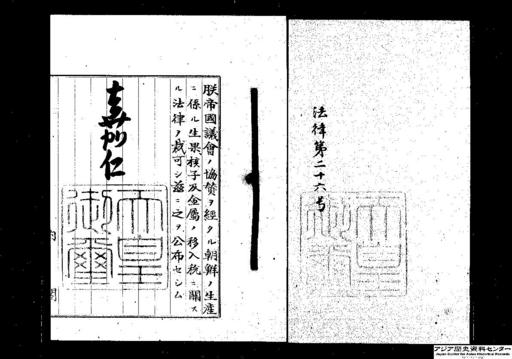 法律第二十六号
天皇御璽
朕帝國議會ノ協賛ヲ經タル朝鮮ノ生産
ニ係ル生果核子及金屬ノ移入税ニ關ス
ル法律ヲ裁可シ茲ニ之ヲ公布セシム
嘉仁
天皇御璽
内閣
アジア歴史資料センター
Japan Center for Asian Historical Records